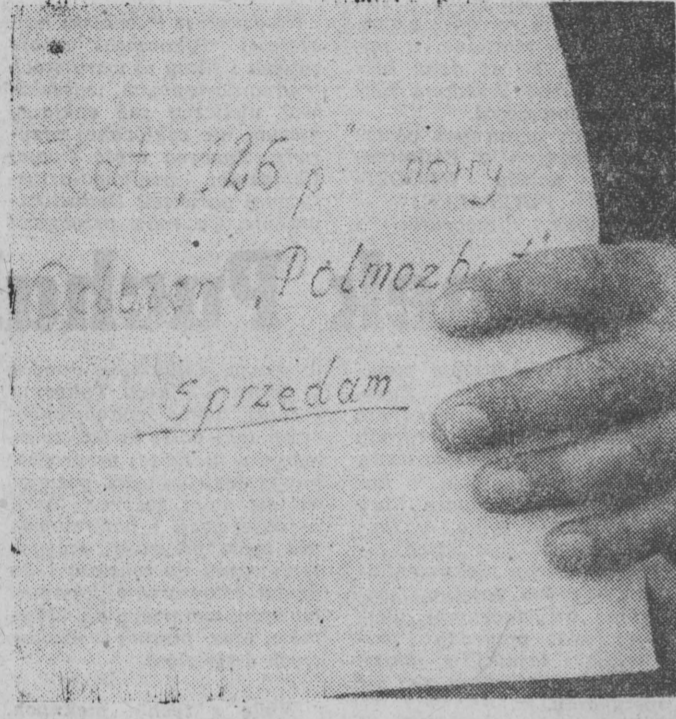 Fiat „126 p" nowy
Odbiór „Polmozbyt"
sprzedam